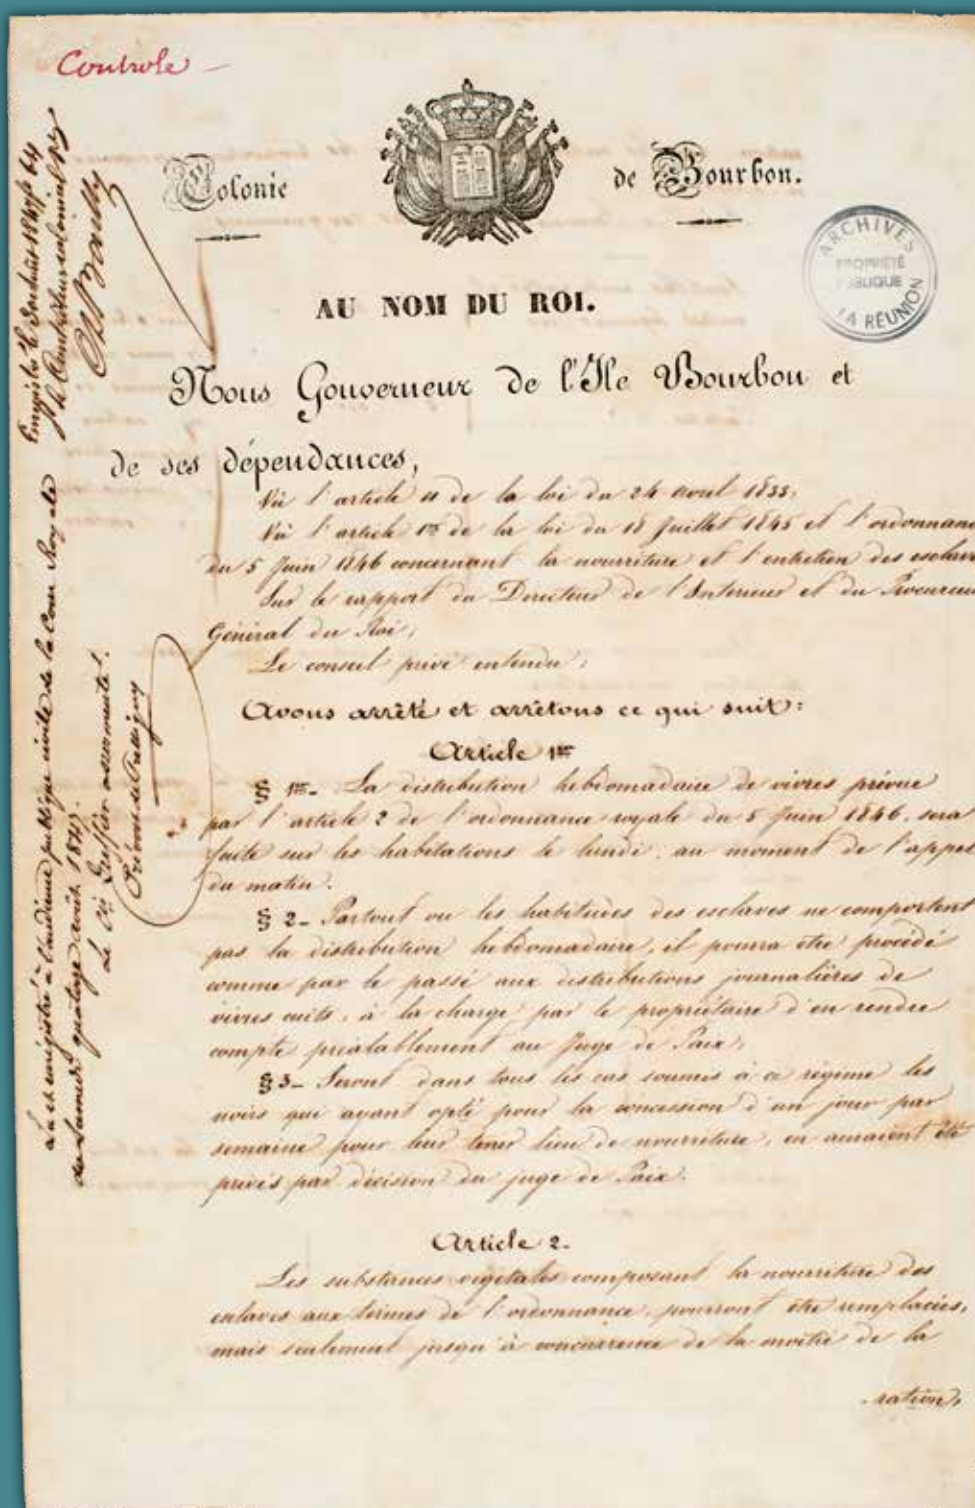 Controle
Colonie
de Bourbon.
ARCHIVES
PROPRIÉTÉ
PUBLIQUE
LA RÉUNION
AU NOM DU ROI.
Nous Gouverneur de l'Ile Bourbon et
de ses dépendances,
Vu l'article 11 de la loi du 24 avril 1833,
Vu l'article 1er de la loi du 18 Juillet 1845 et l'ordonnanc
du 5 Juin 1846 concernant la nourriture et l'entretien des esclave
Sur le rapport du Directeur de l'Intérieur et du Procureur
Général du Roi,
Le conseil privé entendu,
Avons arrêté et arrêtons ce qui suit:
Article 1er
§ 1er- La distribution hebdomadaire de vivres prévue
par l'article 2 de l'ordonnance royale du 5 Juin 1846, sera
faite sur les habitations le lundi, au moment de l'appel
du matin.
§ 2- Partout ou les habitudes des esclaves ne comportent
pas la distribution hebdomadaire, il pourra être procédé
comme par le passé aux distributions journalières de
vivres cuits, à la charge par le propriétaire d'en rendre
compte préalablement au Juge de Paix,
§ 3- Seront dans tous les cas soumis à ce régime les
noirs qui ayant opté pour la concession d'un jour par
semaine pour leur tenir lieu de nourriture, en auraient été
privés par décision du juge de Paix.
Article 2-
Les substances végétales composant la nourriture des
esclaves aux termes de l'ordonnance, pourront être remplacées,
mais seulement jusqu'à concurrence de la moitié de la
ration,
Lu et enregistré à l'audience publique civile de la Cour Royale
du Samedi quatorze août 1847.
Le Cis Greffier assermenté.